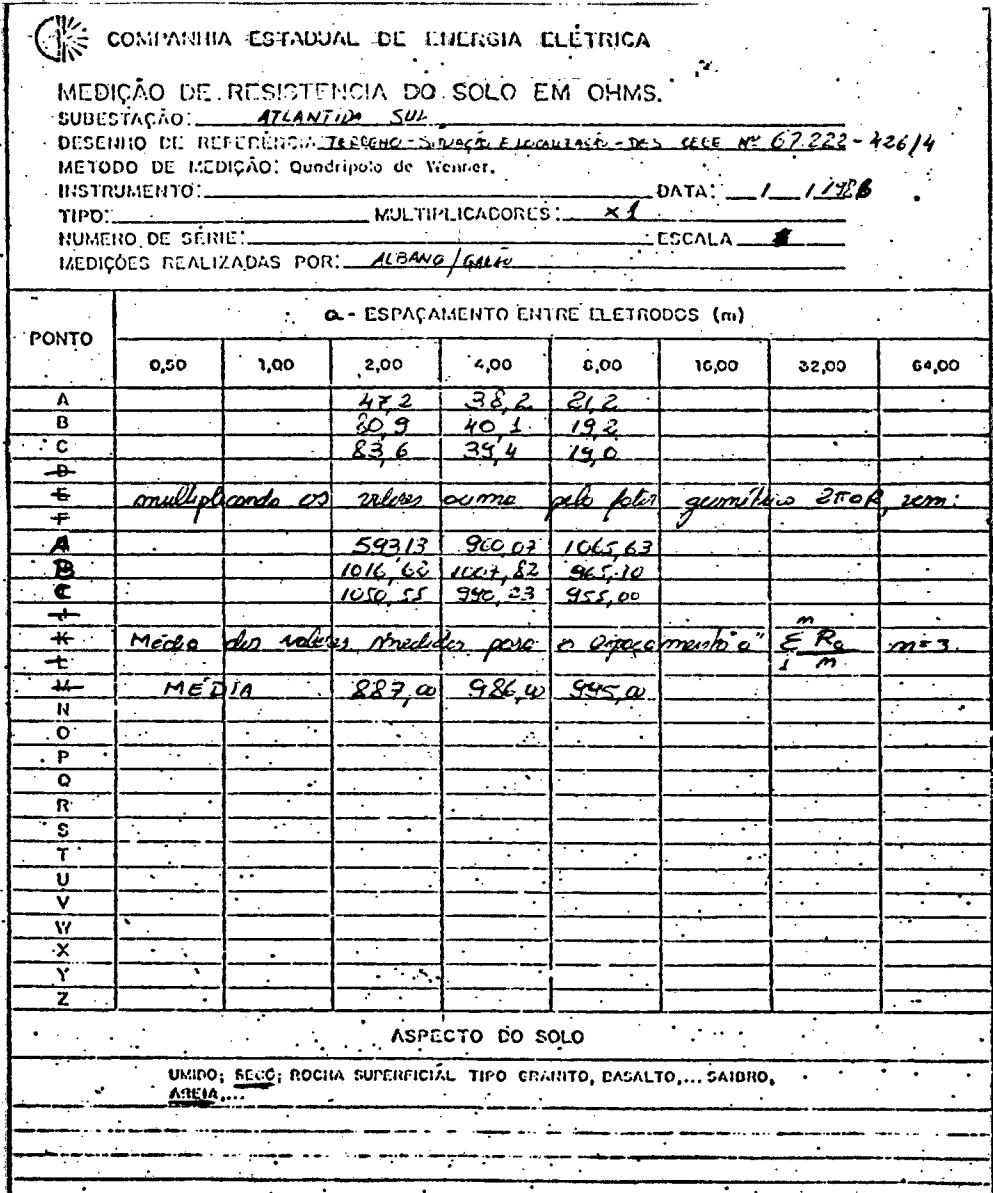 COMPANHIA ESTADUAL DE ENERGIA ELÉTRICA
MEDIÇÃO DE RESISTENCIA DO SOLO EM OHMS.
SUBESTAÇÃO: ATLANTIDA SUL
DESENHO DE REFERÊNCIA: TERRENO - SITUAÇÃO E LOCALIZAÇÃO - DES CEEE Nº 67.222-426/4
METODO DE MEDIÇÃO: Quadripolo de Wenner.
INSTRUMENTO: DATA: / /1986
TIPO: MULTIPLICADORES: x1
NUMERO DE SÉRIE: ESCALA
MEDIÇÕES REALIZADAS POR: ALBANO/GALEÃO
PONTO a - ESPAÇAMENTO ENTRE ELETRODOS (m)
0,50 1,00 2,00 4,00 8,00 16,00 32,00 64,00
A 47,2 38,2 21,2
B 80,9 40,1 19,2
C 83,6 39,4 19,0
D
E multiplicando os valores acima pelo fator geométrico 2πaR, vem:
F
A 593,13 960,07 1065,63
B 1016,62 1007,82 965,10
C 1050,55 990,23 955,00
K Média dos valores medidos para o espaçamento "a" Σ Ra m n=3.
L
M MÉDIA 887,00 986,00 995,00
N
O
P
Q
R
S
T
U
V
W
X
Y
Z
ASPECTO DO SOLO
UMIDO; SECO; ROCHA SUPERFICIAL TIPO GRANITO, BASALTO,... SAIBRO,
AREIA,...